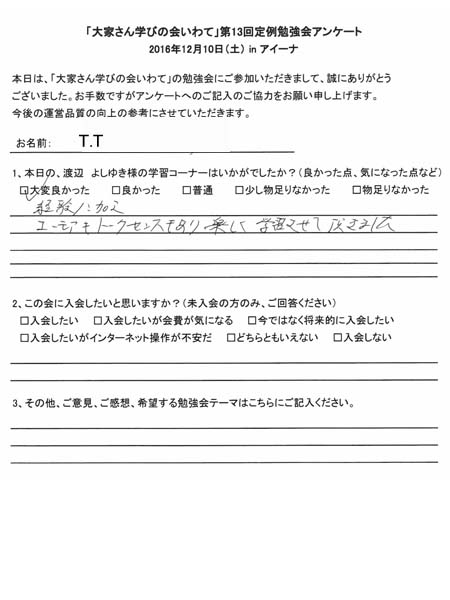 「大家さん学びの会いわて」第13回定例勉強会アンケート
2016年12月10日(土) in アイーナ
本日は、「大家さん学びの会いわて」の勉強会にご参加いただきまして、誠にありがとう
ございました。お手数ですがアンケートへのご記入のご協力をお願い申し上げます。
今後の運営品質の向上の参考にさせていただきます。
お名前: T.T
1、本日の、渡辺 よしゆき様の学習コーナーはいかがでしたか?(良かった点、気になった点など)
☑大変良かった □良かった □普通 □少し物足りなかった □物足りなかった
経験に加え
ユーモアもトークセンスもあり 楽しく 学習させて頂きました
2、この会に入会したいと思いますか?(未入会の方のみ、ご回答ください)
□入会したい □入会したいが会費が気になる □今ではなく将来的に入会したい
□入会したいがインターネット操作が不安だ □どちらともいえない □入会しない
3、その他、ご意見、ご感想、希望する勉強会テーマはこちらにご記入ください。